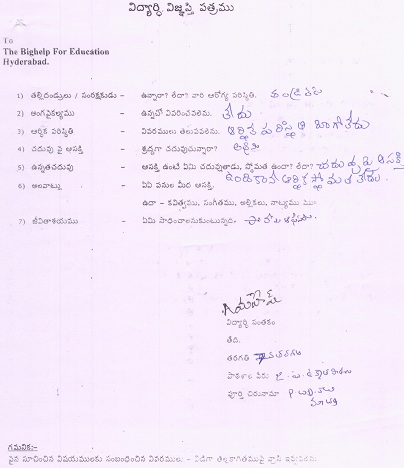 విద్యార్థి విజ్ఞప్తి పత్రము
To
The Bighelp For Education
Hyderabad.
1) తల్లిదండ్రులు / సంరక్షకుడు - ఉన్నారా? లేదా? వారి ఆరోగ్య పరిస్థితి.
2) అంగవైకల్యము - ఉన్నచో వివరించవలెను. లేదు
3) ఆర్థిక పరిస్థితి - వివరములు తెలుపవలెను. ఆర్థిక పరిస్థితి బాగోలేదు
4) చదువు పై ఆసక్తి - శ్రద్ధగా చదువుచున్నారా?
5) ఉన్నతచదువు - ఆసక్తి ఉంటే ఏమి చదువుతాడు, స్తోమత ఉందా? లేదా? చదువు పై ఆసక్తి
ఉంది కాని ఆర్థిక స్తోమత లేదు.
6) అలవాట్లు - ఏఏ పనుల మీద ఆసక్తి.
ఉదా - కవిత్వము, సంగీతము, అల్లికలు, నాట్యము
7) జీవితాశయము - ఏమి సాధించాలనుకుంటున్నది.
విద్యార్థి సంతకం
తేది.
తరగతి
పాఠశాల పేరు
పూర్తి చిరునామా
గమనిక:-
పైన సూచించిన విషయములకు సంబంధించిన వివరములు -